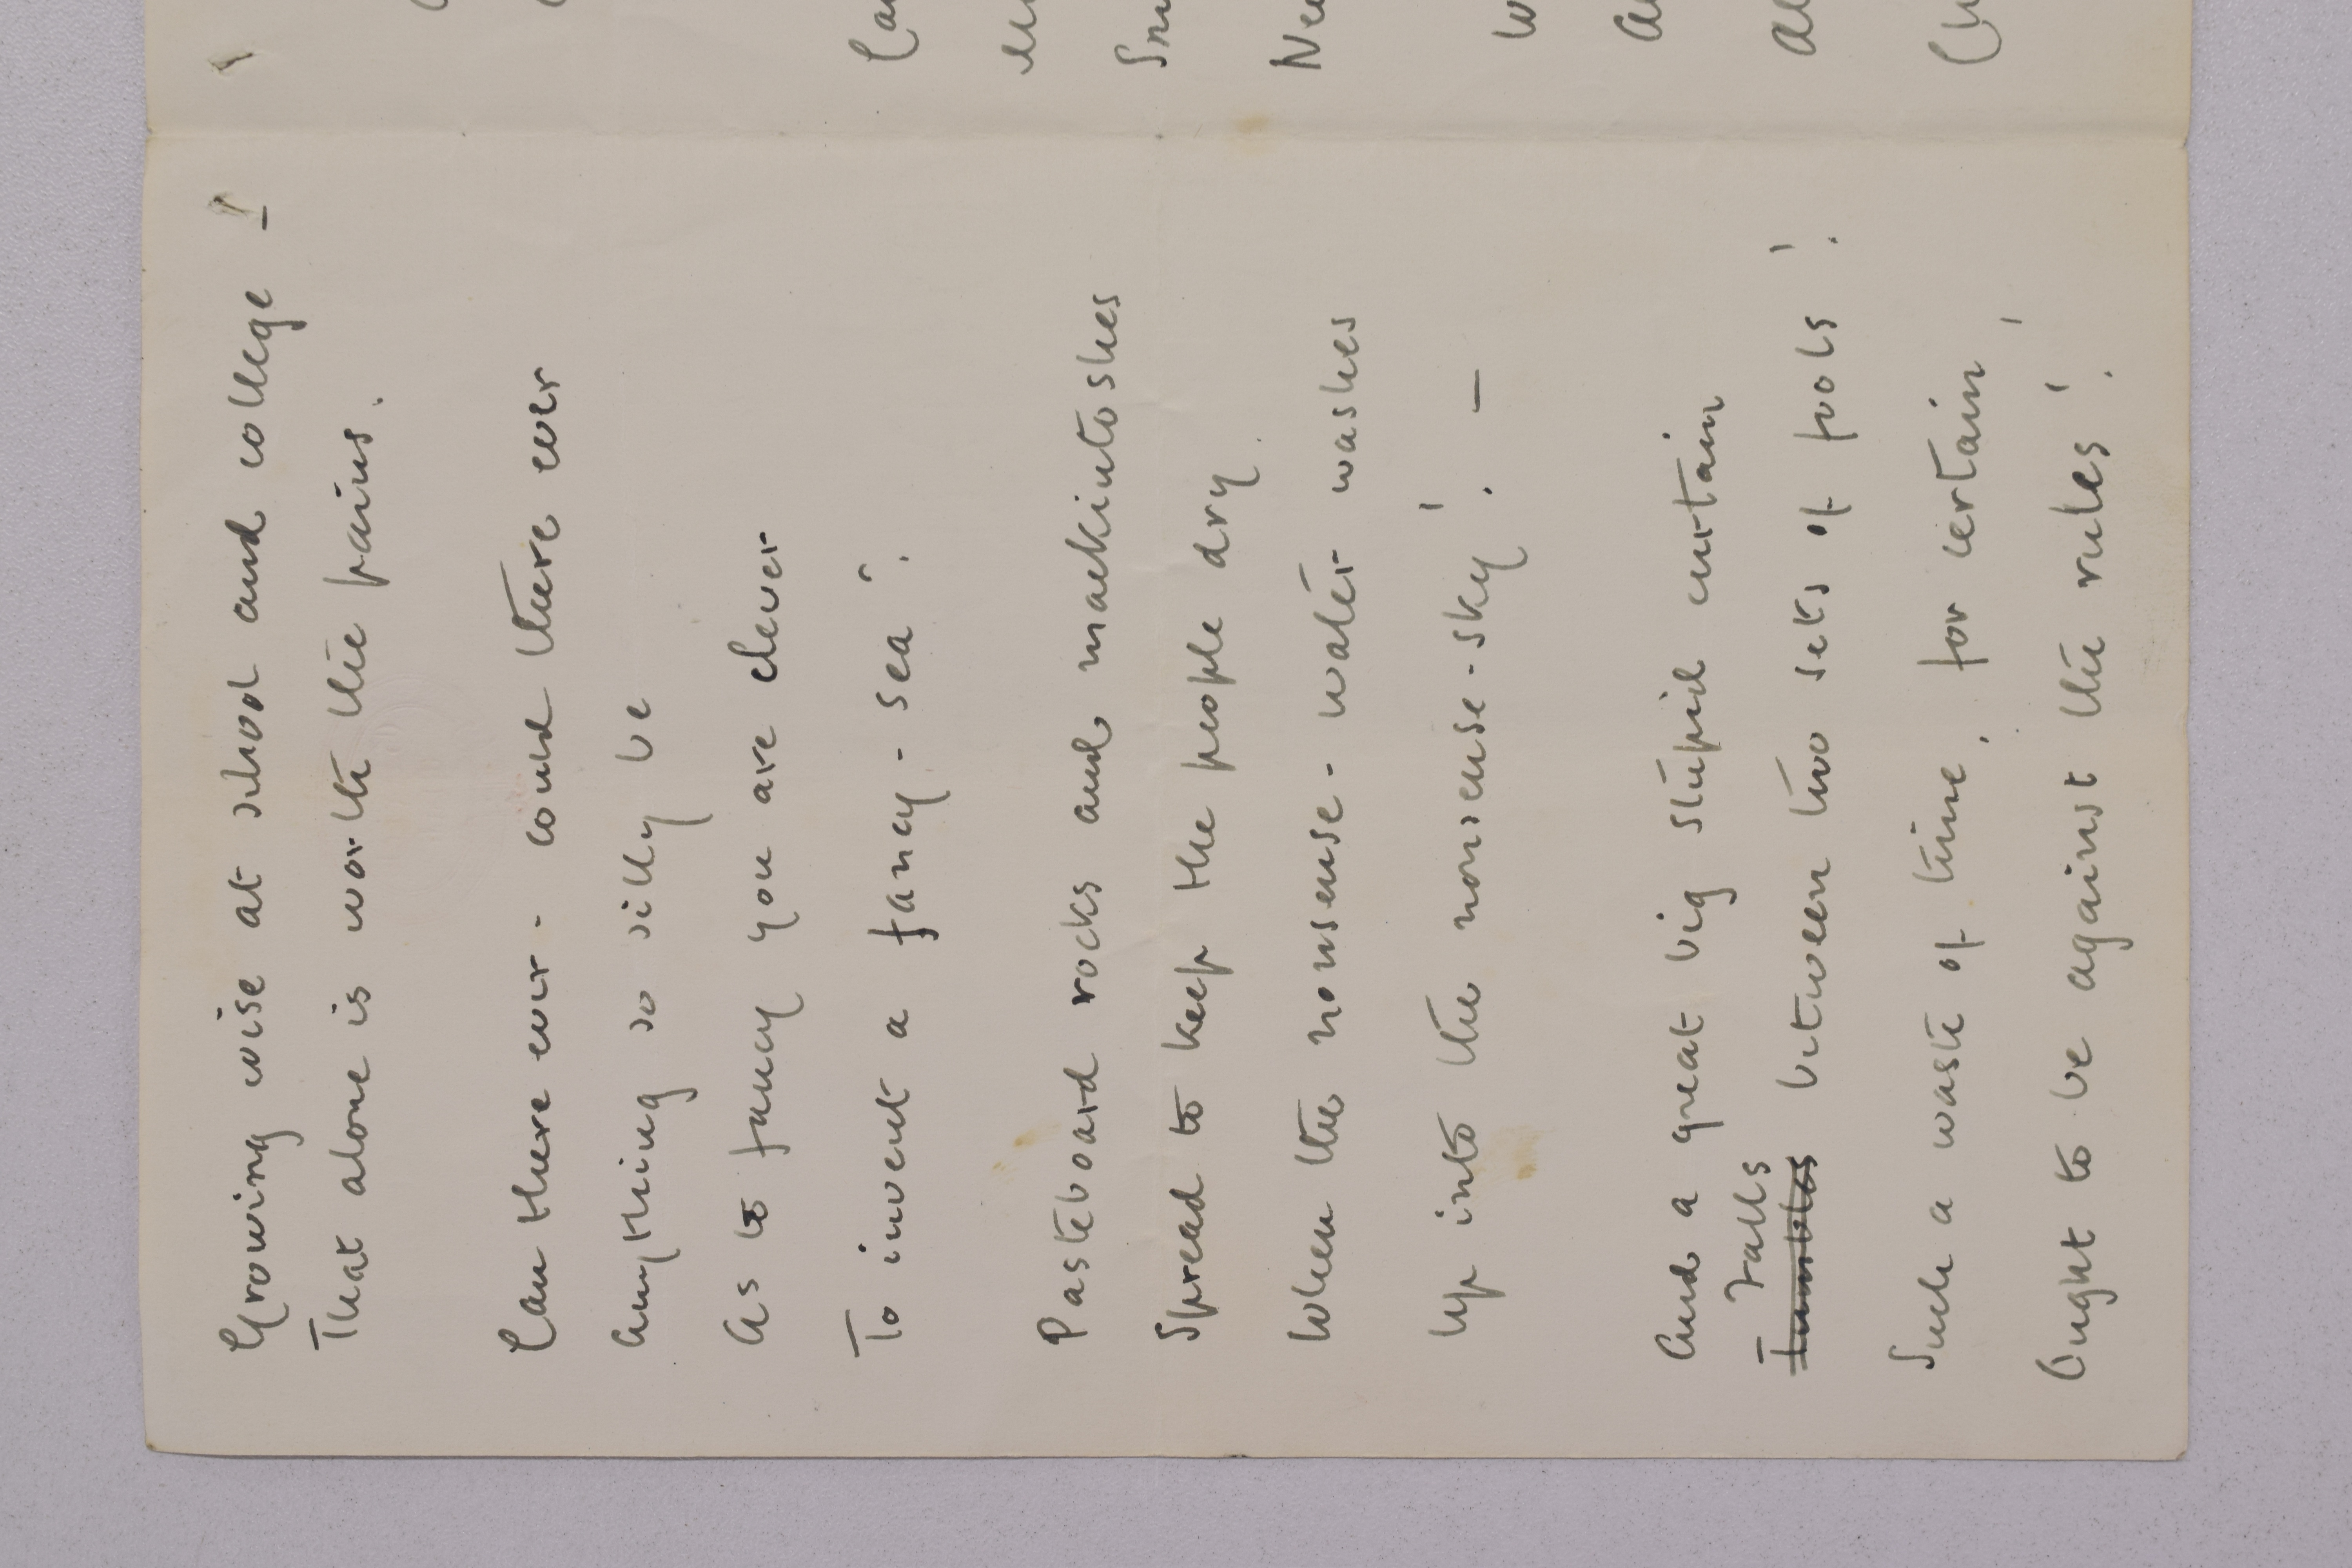 Growing wise at school and college !
That alone is worth the pains.
Can there ever - could there ever
Anything so silly be
As to fancy you are clever
To invent a fancy - sea ?
Pasteboard rocks and mackintoshes
Spread to keep the people dry.
When the nonsense - water washes
Up into the nonsense - sky ! —
And a great big stupid curtain
Falls
Tumbles between two sets of fools !
Such a waste of time, for certain !
Ought to be against the rules !
Ca
Sm
Ne
W